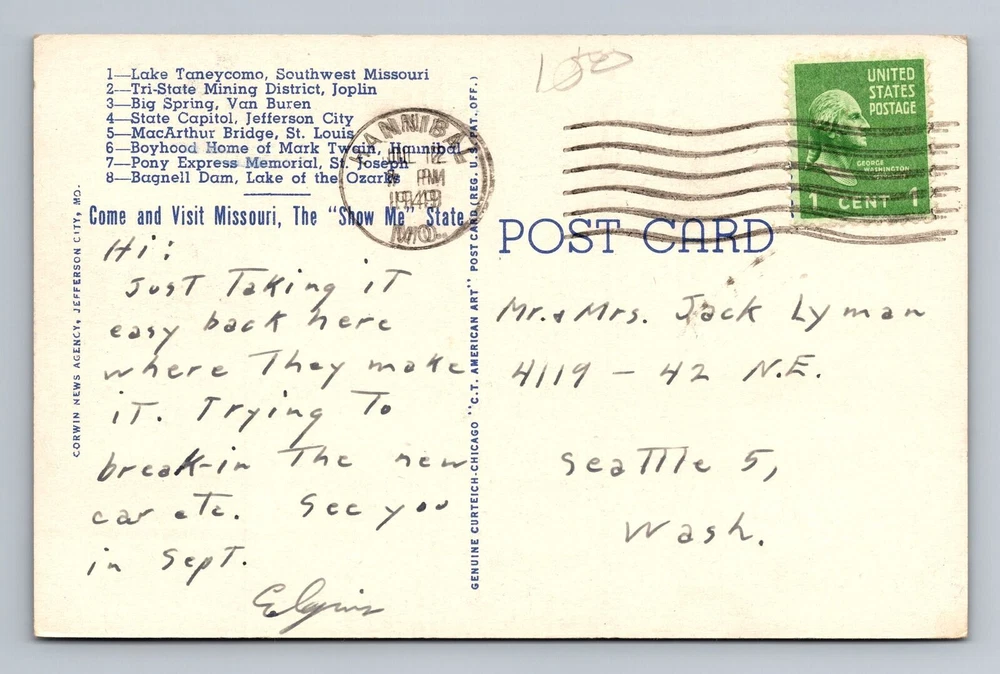 1—Lake Taneycomo, Southwest Missouri
2—Tri-State Mining District, Joplin
3—Big Spring, Van Buren
4—State Capitol, Jefferson City
5—MacArthur Bridge, St. Louis
6—Boyhood Home of Mark Twain, Hannibal
7—Pony Express Memorial, St. Joseph
8—Bagnell Dam, Lake of the Ozarks
Come and Visit Missouri, The "Show Me" State
CORWIN NEWS AGENCY, JEFFERSON CITY, MO.
Hi!
Just Taking it
easy back here
where They make
it. Trying To
break-in The new
car etc. See you
in Sept.
GENUINE CURTEICH-CHICAGO "C.T. AMERICAN ART" POST CARD (REG. U.S. PAT. OFF.)
HANNIBAL
12
PM
1949
MO.
UNITED
STATES
POSTAGE
GEORGE
WASHINGTON
1 CENT 1
POST CARD
Mr. & Mrs. Jack Lyman
4119 - 42 N.E.
Seattle 5,
Wash.